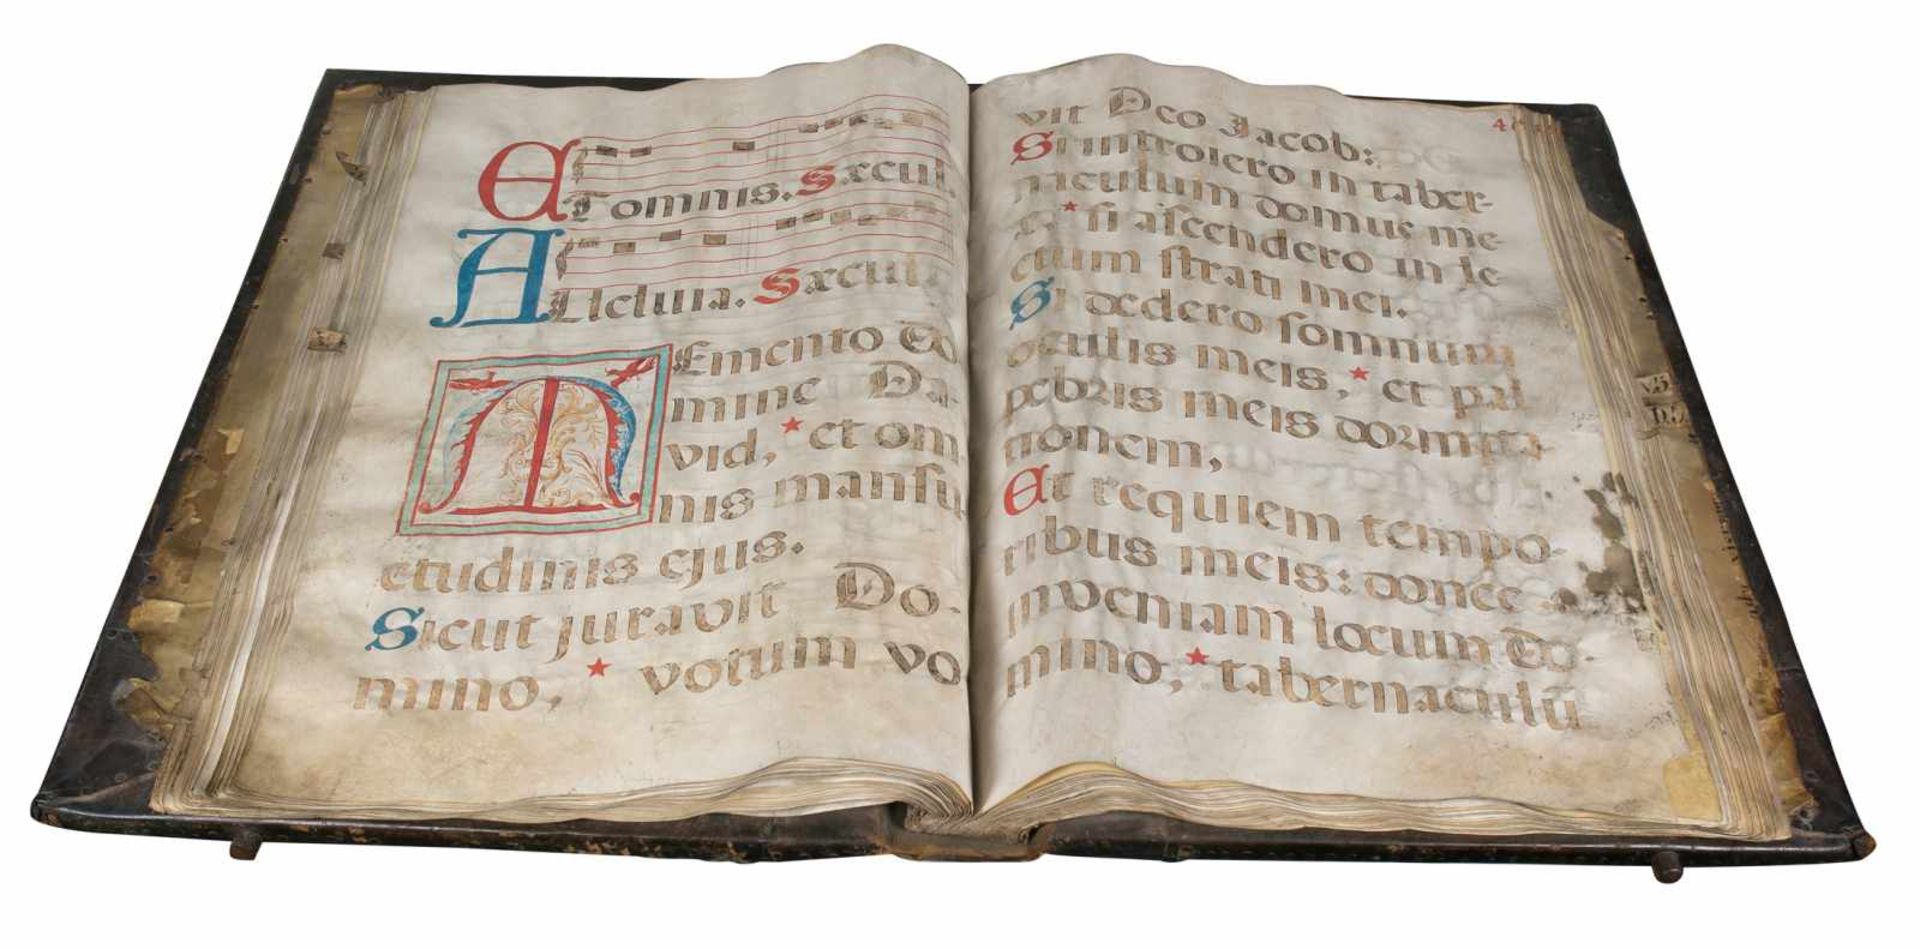 ET omnis. Sæcul.
ALleluia. Sæcul.
MEmento Do
mine Da-
vid, * et om
nis mansu-
etudinis ejus.
Sicut juravit Do-
mino, * votum vo
vit Deo Jacob:
Si introiero in taber-
naculum domus me
æ * si ascendero in le
ctum strati mei.
Si dedero somnum
oculis meis, * et pal
pebris meis dormita
tionem,
Et requiem tempo-
ribus meis: donec
inveniam locum Do-
mino, * tabernaculū